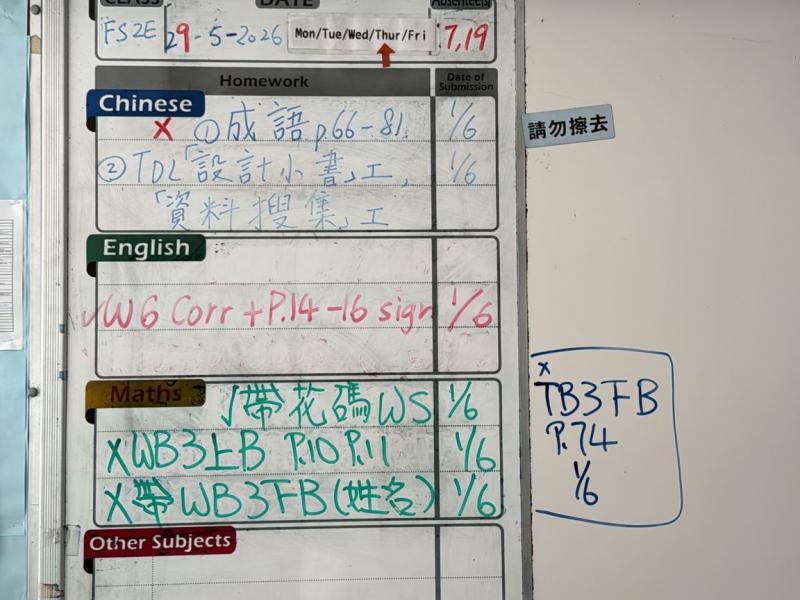 CLASS DATE Absentee(s)
FS2E 29-5-2026 Mon/Tue/Wed/Thur/Fri 7,19
Homework Date of Submission
Chinese
x ①成語 p.66-81. 1/6
②TDL「設計小書」工, 1/6
「資料搜集」工
English
✓W6 Corr + P.14-16 sign 1/6
Maths ✓帶花碼WS 1/6
xWB3上B P.10 P.11 1/6
x帶WB3下B(姓名) 1/6
Other Subjects
請勿擦去
x
TB3下B
P.74
1/6